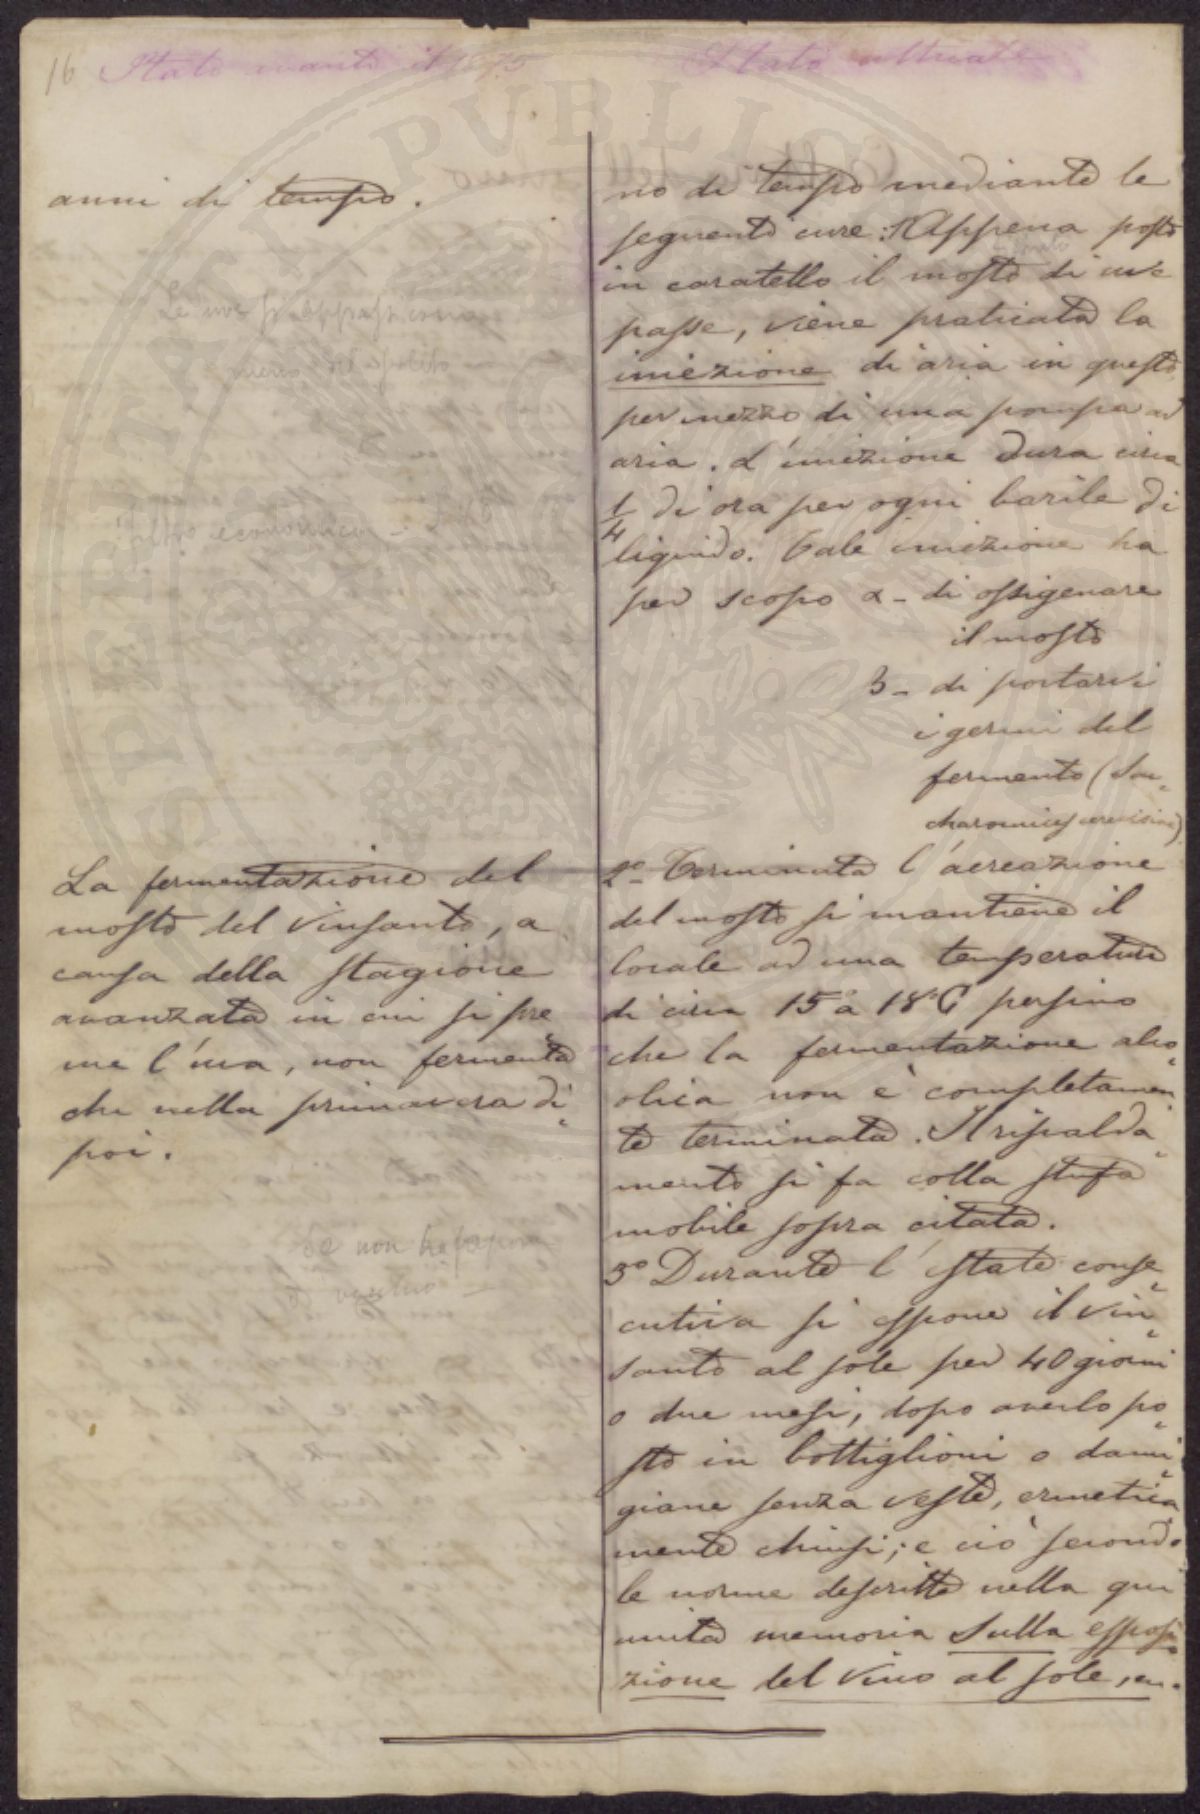 16 Stato avanti il 1875
Stato attuale
anni di tempo.
Le uve si appassiscono
meno del solito
Filtro economico
La fermentazione del
mosto del vinsanto, a
causa della stagione
avanzata in cui si pre
me l'uva, non fermenta
che nella primavera di
poi.
Se non ha sapore
di vecchio
no di tempo mediante le
seguenti cure: 1º Appena posto
in caratello il mosto di uve
passe, viene praticata la
iniezione di aria in questo
per mezzo di una pompa ad
aria. L'iniezione dura circa
1/4 di ora per ogni barile di
liquido. Tale iniezione ha
per scopo a - di ossigenare
il mosto
b - di portarvi
i germi del
fermento (Sac=
charomices cerevisiae)
2º - Terminata l'aereazione
del mosto si mantiene il
locale ad una temperatura
di circa 15º a 18º C persino
che la fermentazione alco=
olica non è completamen=
te terminata. Il riscalda=
mento si fa colla stufa
mobile sopra citata.
3º Durante l'estate conse=
cutiva si espone il vin=
santo al sole per 40 giorni
o due mesi, dopo averlo po=
sto in bottiglioni o dami=
giane senza veste, ermetica
mente chiusi; e ciò secondo
le norme descritte nella qui
unita memoria Sulla esposi=
zione del vino al sole, en=